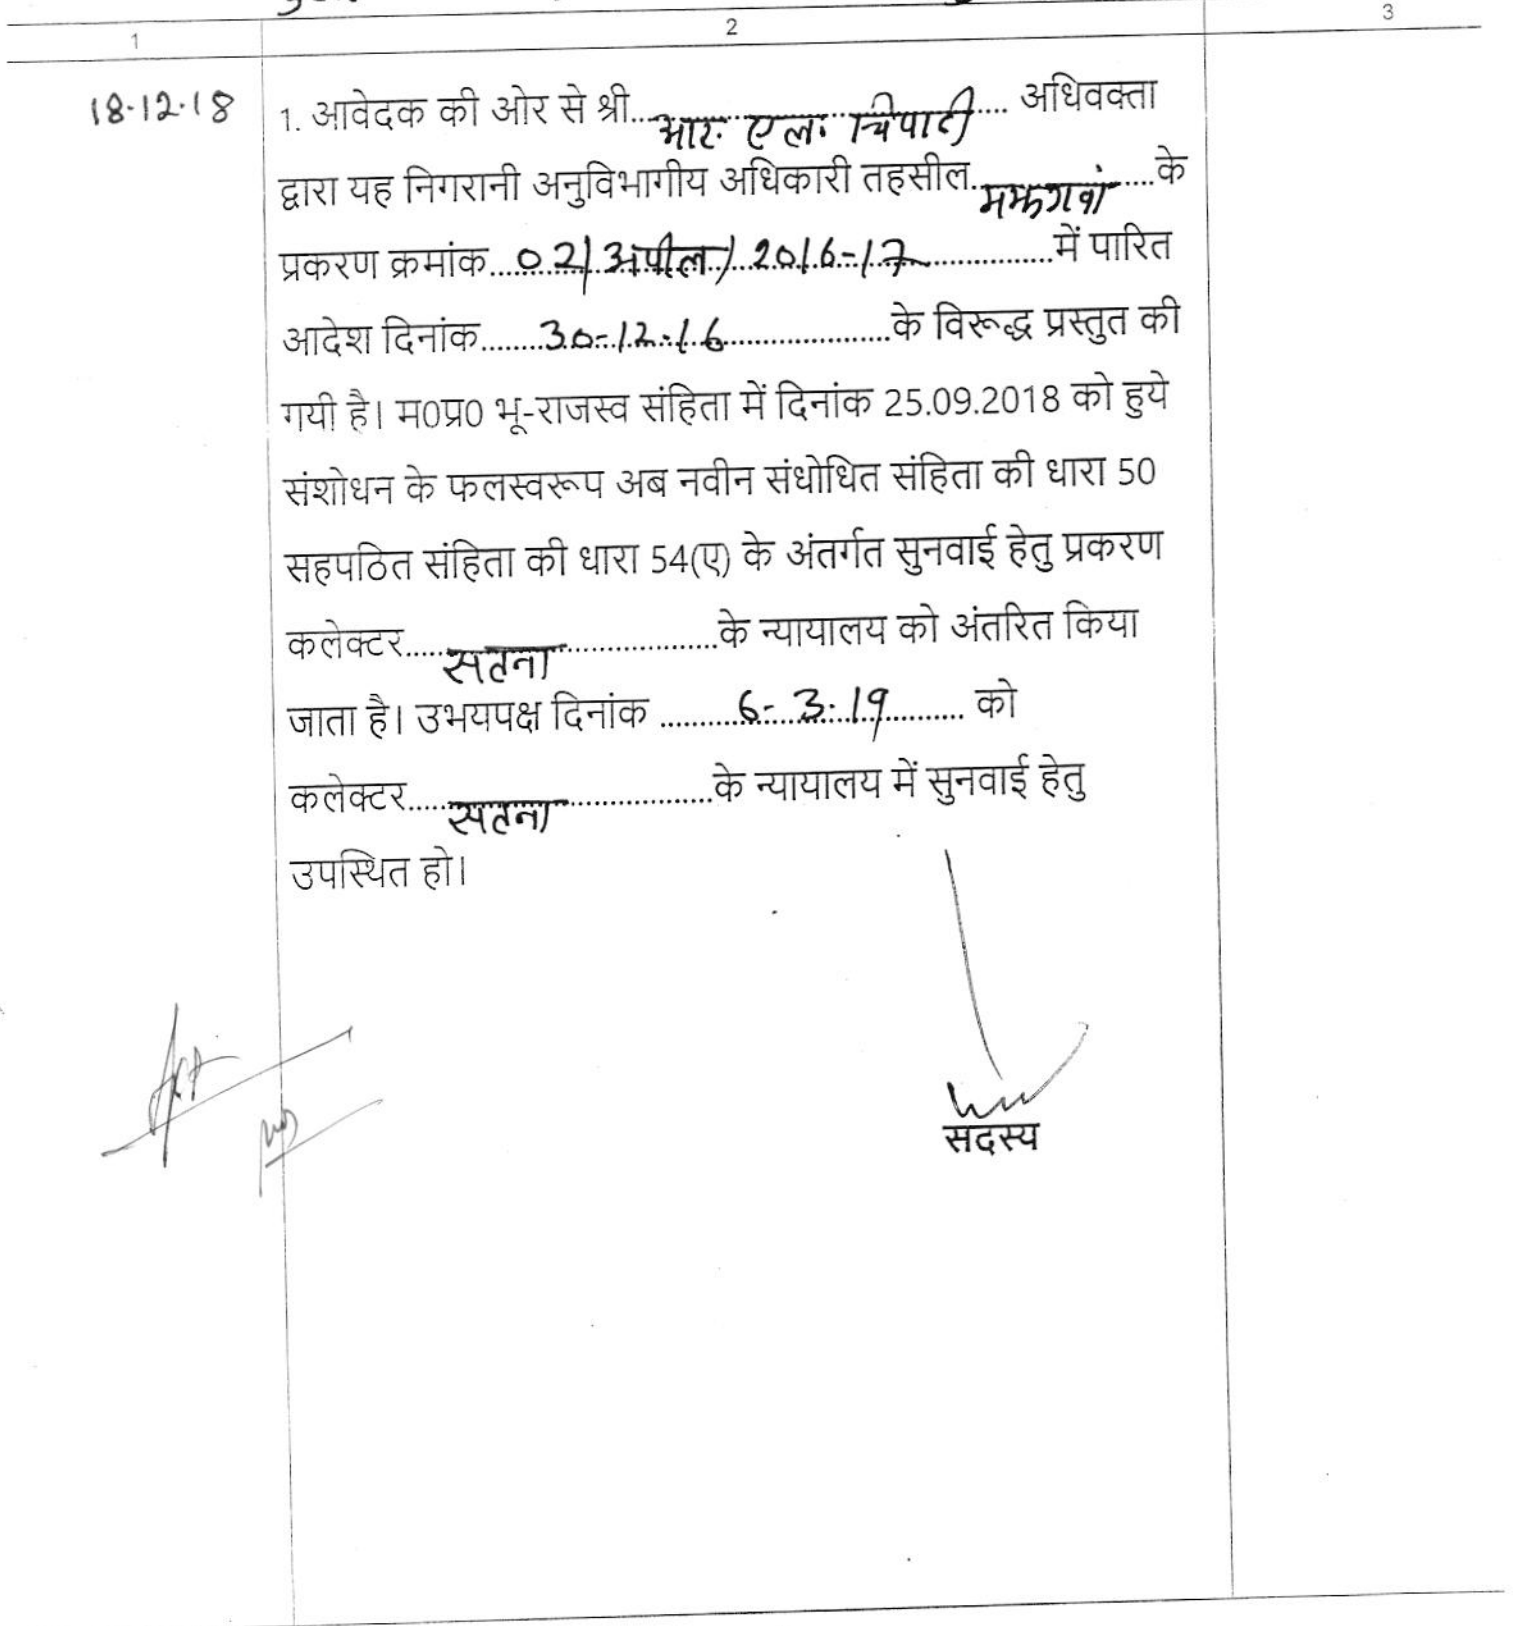 1 2 3
18-12-18 1. आवेदक की ओर से श्री....आर. एल. त्रिपाठी.... अधिवक्ता
द्वारा यह निगरानी अनुविभागीय अधिकारी तहसील....मझगवां....के
प्रकरण क्रमांक....02/अपील/2016-17....में पारित
आदेश दिनांक....30-12-16....के विरूद्ध प्रस्तुत की
गयी है। म0प्र0 भू-राजस्व संहिता में दिनांक 25.09.2018 को हुये
संशोधन के फलस्वरूप अब नवीन संधोधित संहिता की धारा 50
सहपठित संहिता की धारा 54(ए) के अंतर्गत सुनवाई हेतु प्रकरण
कलेक्टर....सतना....के न्यायालय को अंतरित किया
जाता है। उभयपक्ष दिनांक ....6-3-19.... को
कलेक्टर....सतना....के न्यायालय में सुनवाई हेतु
उपस्थित हो।
सदस्य